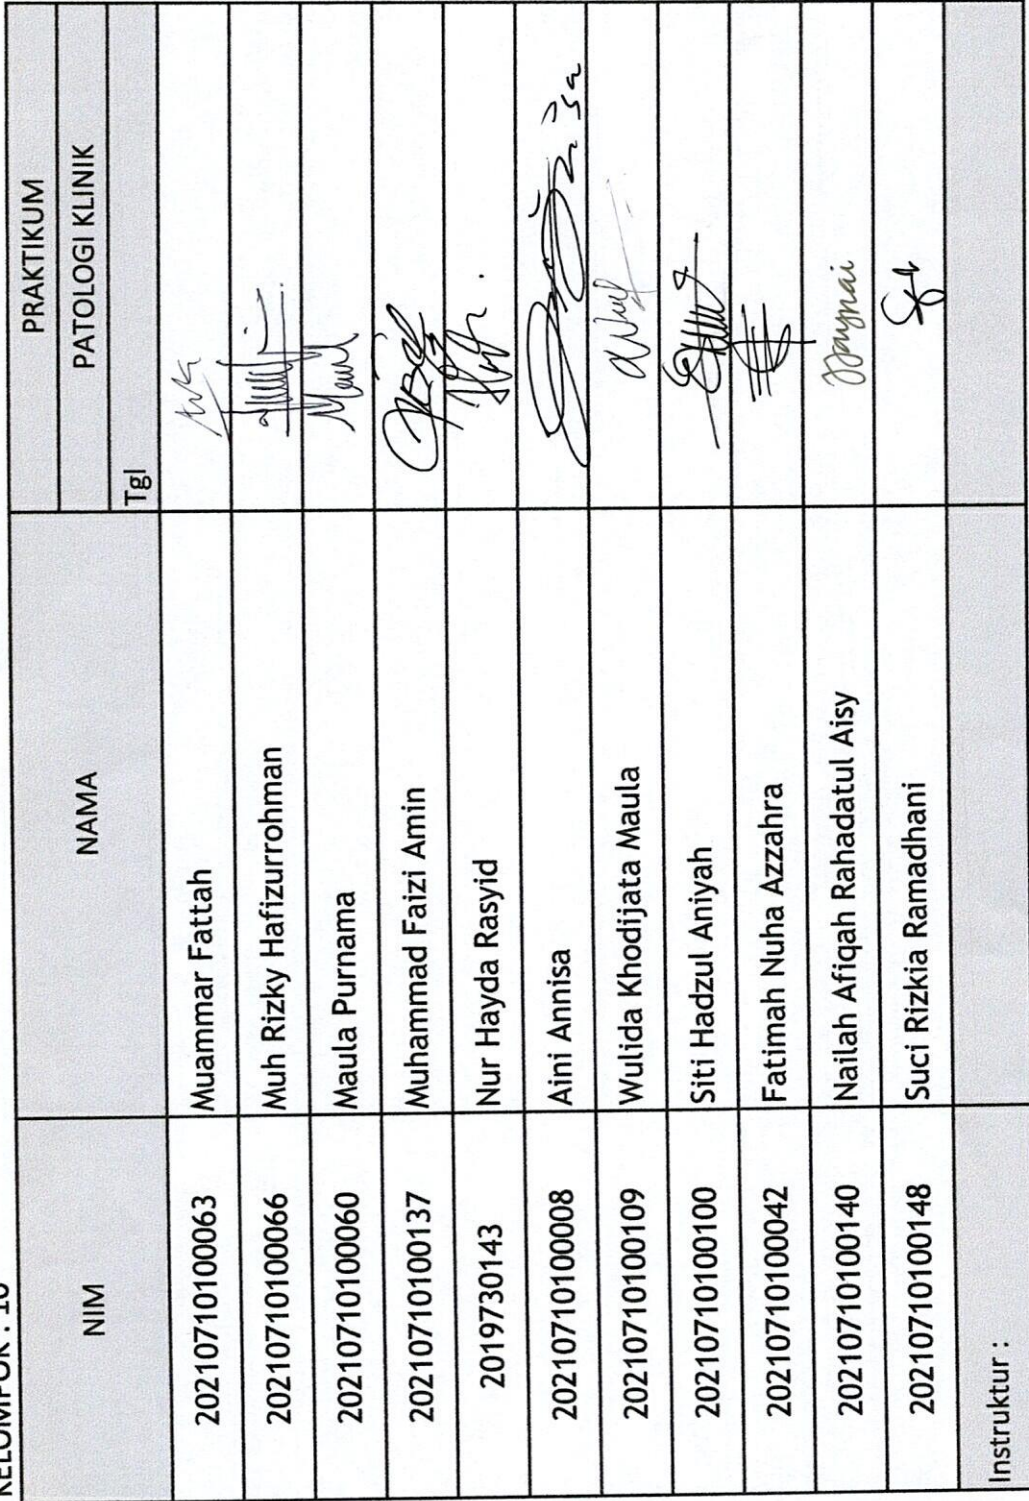 KELOMPOK : 10
NIM NAMA PRAKTIKUM
PATOLOGI KLINIK
Tgl
20210710100063 Muammar Fattah
20210710100066 Muh Rizky Hafizurrohman
20210710100060 Maula Purnama
20210710100137 Muhammad Faizi Amin
2019730143 Nur Hayda Rasyid
20210710100008 Aini Annisa
20210710100109 Wulida Khodijata Maula
20210710100100 Siti Hadzul Aniyah
20210710100042 Fatimah Nuha Azzahra
20210710100140 Nailah Afiqah Rahadatul Aisy
20210710100148 Suci Rizkia Ramadhani
Instruktur :